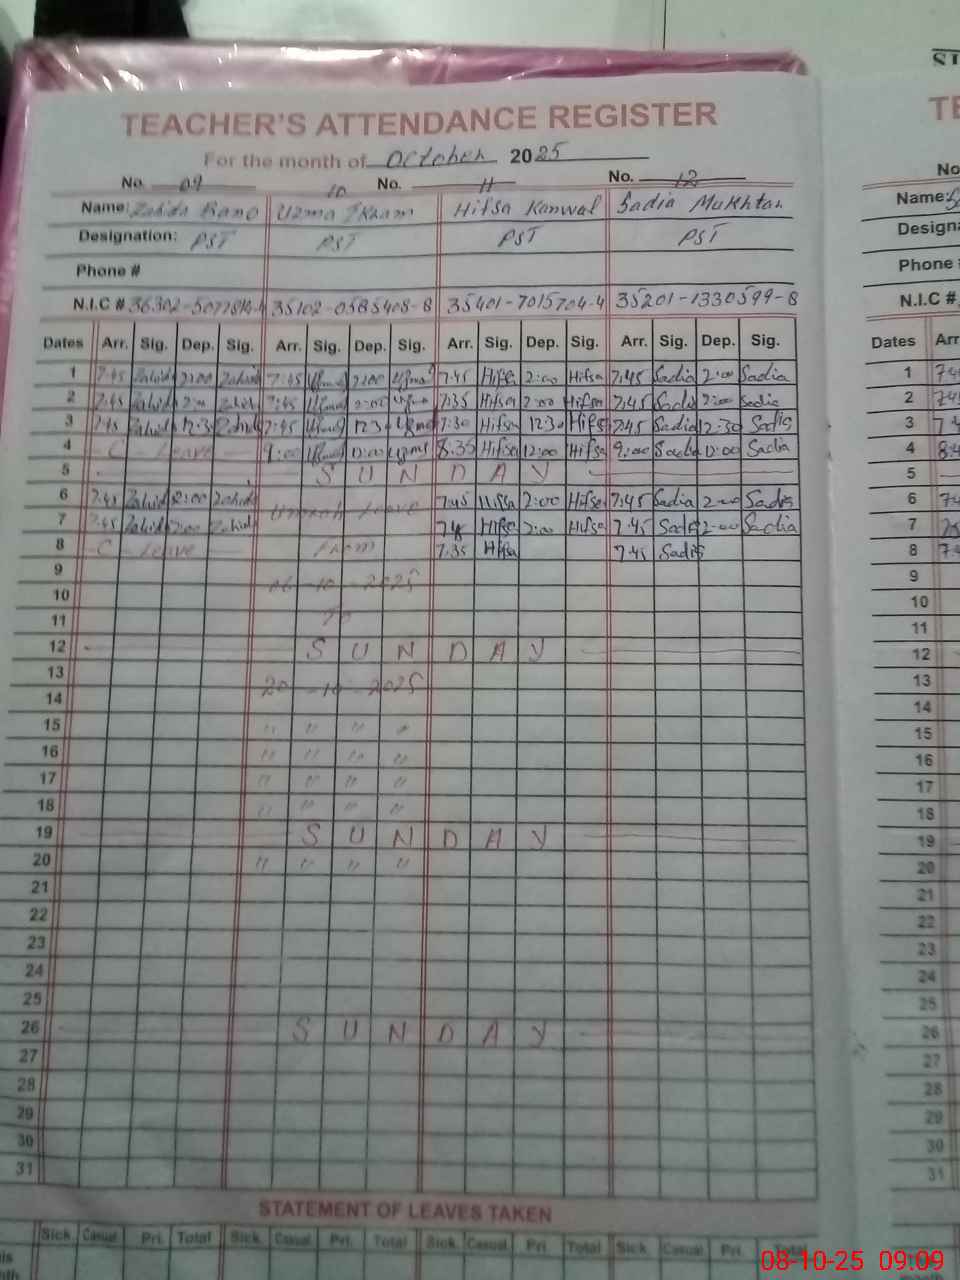 ST
TEACHER'S ATTENDANCE REGISTER
For the month of October 2025
No. 09 10 No. 11 No. 12
Name: Zahida Bano Uzma Ikram Hifsa Kanwal Sadia Mukhtar
Designation: PST PST PST PST
Phone #
N.I.C # 35102-0585408-8 35401-7015704-4 35201-1330599-8
Dates Arr. Sig. Dep. Sig. Arr. Sig. Dep. Sig. Arr. Sig. Dep. Sig. Arr. Sig. Dep. Sig.
1 7:45 Zahida 2:00 Zahida 7:45 Uzma 2:00 Uzma 7:45 Hifsa 2:00 Hifsa 7:45 Sadia 2:00 Sadia
2 7:45 Zahida 2:00 Zahida 7:45 Uzma 2:00 Uzma 7:35 Hifsa 2:00 Hifsa 7:45 Sadia 2:00 Sadia
3 7:45 Zahida 12:30 Zahida 7:45 Uzma 12:30 Uzma 7:30 Hifsa 12:30 Hifsa 7:45 Sadia 12:30 Sadia
4 C - Leave 9:00 Uzma 12:00 Uzma 8:35 Hifsa 12:00 Hifsa 9:00 Sadia 12:00 Sadia
5 S U N D A Y
6 7:45 Zahida 2:00 Zahida Ummrah Leave 7:45 Hifsa 2:00 Hifsa 7:45 Sadia 2:00 Sadia
7 7:45 Zahida 2:00 Zahida Hifsa 2:00 Hifsa 7:45 Sadia 2:00 Sadia
8 C - Leave From 7:35 Hifsa 7:45 Sadia
9 06-10-2025
10
11 To
12 S U N D A Y
13 20-10-2025
14
15 " " " "
16 " " " "
17 " " " "
18 " " " "
19 S U N D A Y
20 " " " "
21
22
23
24
25
26 S U N D A Y
27
28
29
30
31
STATEMENT OF LEAVES TAKEN
Sick. Casual Pri. Total Sick. Casual. Pri. Total Sick. Casual. Pri. Total Sick. Casual. Pri. Total
TE
No
Name:
Design
Phone
N.I.C #
Dates Arr
1
2
3
4
5
6
7
8
9
10
11
12
13
14
15
16
17
18
19
20
21
22
23
24
25
26
27
28
29
30
31
08-10-25 09:09